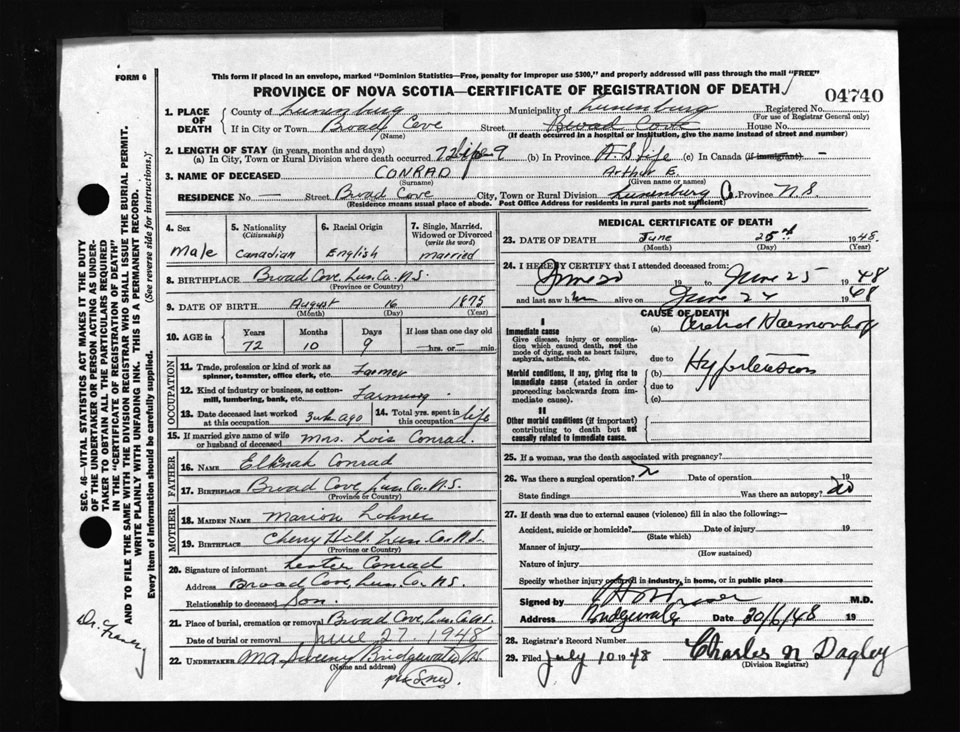 FORM 6
This form if placed in an envelope, marked "Dominion Statistics—Free, penalty for improper use $300," and properly addressed will pass through the mail "FREE"
PROVINCE OF NOVA SCOTIA—CERTIFICATE OF REGISTRATION OF DEATH
04740
1. PLACE OF DEATH
County of Lunenburg Municipality of Lunenburg Registered No.
(For use of Registrar General only)
If in City or Town Broad Cove Street Broad Cove House No.
(Name) (If death occurred in a hospital or institution, give the name instead of street and number)
2. LENGTH OF STAY (in years, months and days)
(a) In City, Town or Rural Division where death occurred (b) In Province Life (c) In Canada (if immigrant) —
3. NAME OF DECEASED CONRAD Arthur E.
(Surname) (Given name or names)
RESIDENCE No. — Street Broad Cove City, Town or Rural Division Lunenburg Co. Province N.S.
(Residence means usual place of abode. Post Office Address for residents in rural parts not sufficient)
4. Sex
Male
5. Nationality
(Citizenship)
Canadian
6. Racial Origin
English
7. Single, Married, Widowed or Divorced
(write the word)
Married
8. BIRTHPLACE Broad Cove, Lun. Co. N.S.
(Province or Country)
9. DATE OF BIRTH August 16 1875
(Month) (Day) (Year)
10. AGE in Years Months Days If less than one day old
72 10 9 —hrs. or —min.
OCCUPATION
11. Trade, profession or kind of work as spinner, teamster, office clerk, etc. Farmer
12. Kind of industry or business, as cotton-mill, lumbering, bank, etc. Farming
13. Date deceased last worked at this occupation 3 wk ago
14. Total yrs. spent in this occupation life
15. If married give name of wife or husband of deceased Mrs. Lois Conrad.
FATHER
16. NAME Elknah Conrad
17. BIRTHPLACE Broad Cove, Lun. Co. N.S.
(Province or Country)
MOTHER
18. MAIDEN NAME Marion Lohnes
19. BIRTHPLACE Cherry Hill, Lun. Co. N.S.
(Province or Country)
20. Signature of informant Lester Conrad
Address Broad Cove, Lun. Co. N.S.
Relationship to deceased Son.
21. Place of burial, cremation or removal Broad Cove, Lun. Co.
Date of burial or removal June 27. 1948
22. UNDERTAKER Sweeny Bridgewater
(Name and address)
MEDICAL CERTIFICATE OF DEATH
23. DATE OF DEATH June 25th 1948
(Month) (Day) (Year)
24. I HEREBY CERTIFY that I attended deceased from:
June 20 19 to June 25 1948
and last saw him alive on June 24 1948
CAUSE OF DEATH
I
Immediate cause
Give disease, injury or complication which caused death, not the mode of dying, such as heart failure, asphyxia, asthenia, etc.
(a)
due to
Morbid conditions, if any, giving rise to immediate cause (stated in order proceeding backwards from immediate cause).
(b) Hypertension
due to
(c)
II
Other morbid conditions (if important) contributing to death but not causally related to immediate cause.
25. If a woman, was the death associated with pregnancy?
26. Was there a surgical operation? Date of operation 19
State findings Was there an autopsy? no
27. If death was due to external causes (violence) fill in also the following:—
Accident, suicide or homicide? Date of injury 19
(State which)
Manner of injury
(How sustained)
Nature of injury
Specify whether injury occurred in industry, in home, or in public place
Signed by M.D.
Address Bridgewater Date 20/6/48 19
28. Registrar's Record Number
29. Filed July 10 1948 Charles N Dagley
(Division Registrar)
SEC. 46—VITAL STATISTICS ACT MAKES IT THE DUTY
OF THE UNDERTAKER OR PERSON ACTING AS UNDER-
TAKER TO OBTAIN ALL THE PARTICULARS REQUIRED
IN THE "CERTIFICATE OF REGISTRATION OF DEATH"
AND TO FILE THE SAME WITH THE DIVISION REGISTRAR WHO SHALL ISSUE THE BURIAL PERMIT.
WRITE PLAINLY WITH UNFADING INK. THIS IS A PERMANENT RECORD.
Every item of information should be carefully supplied. (See reverse side for instructions.)
Dr.